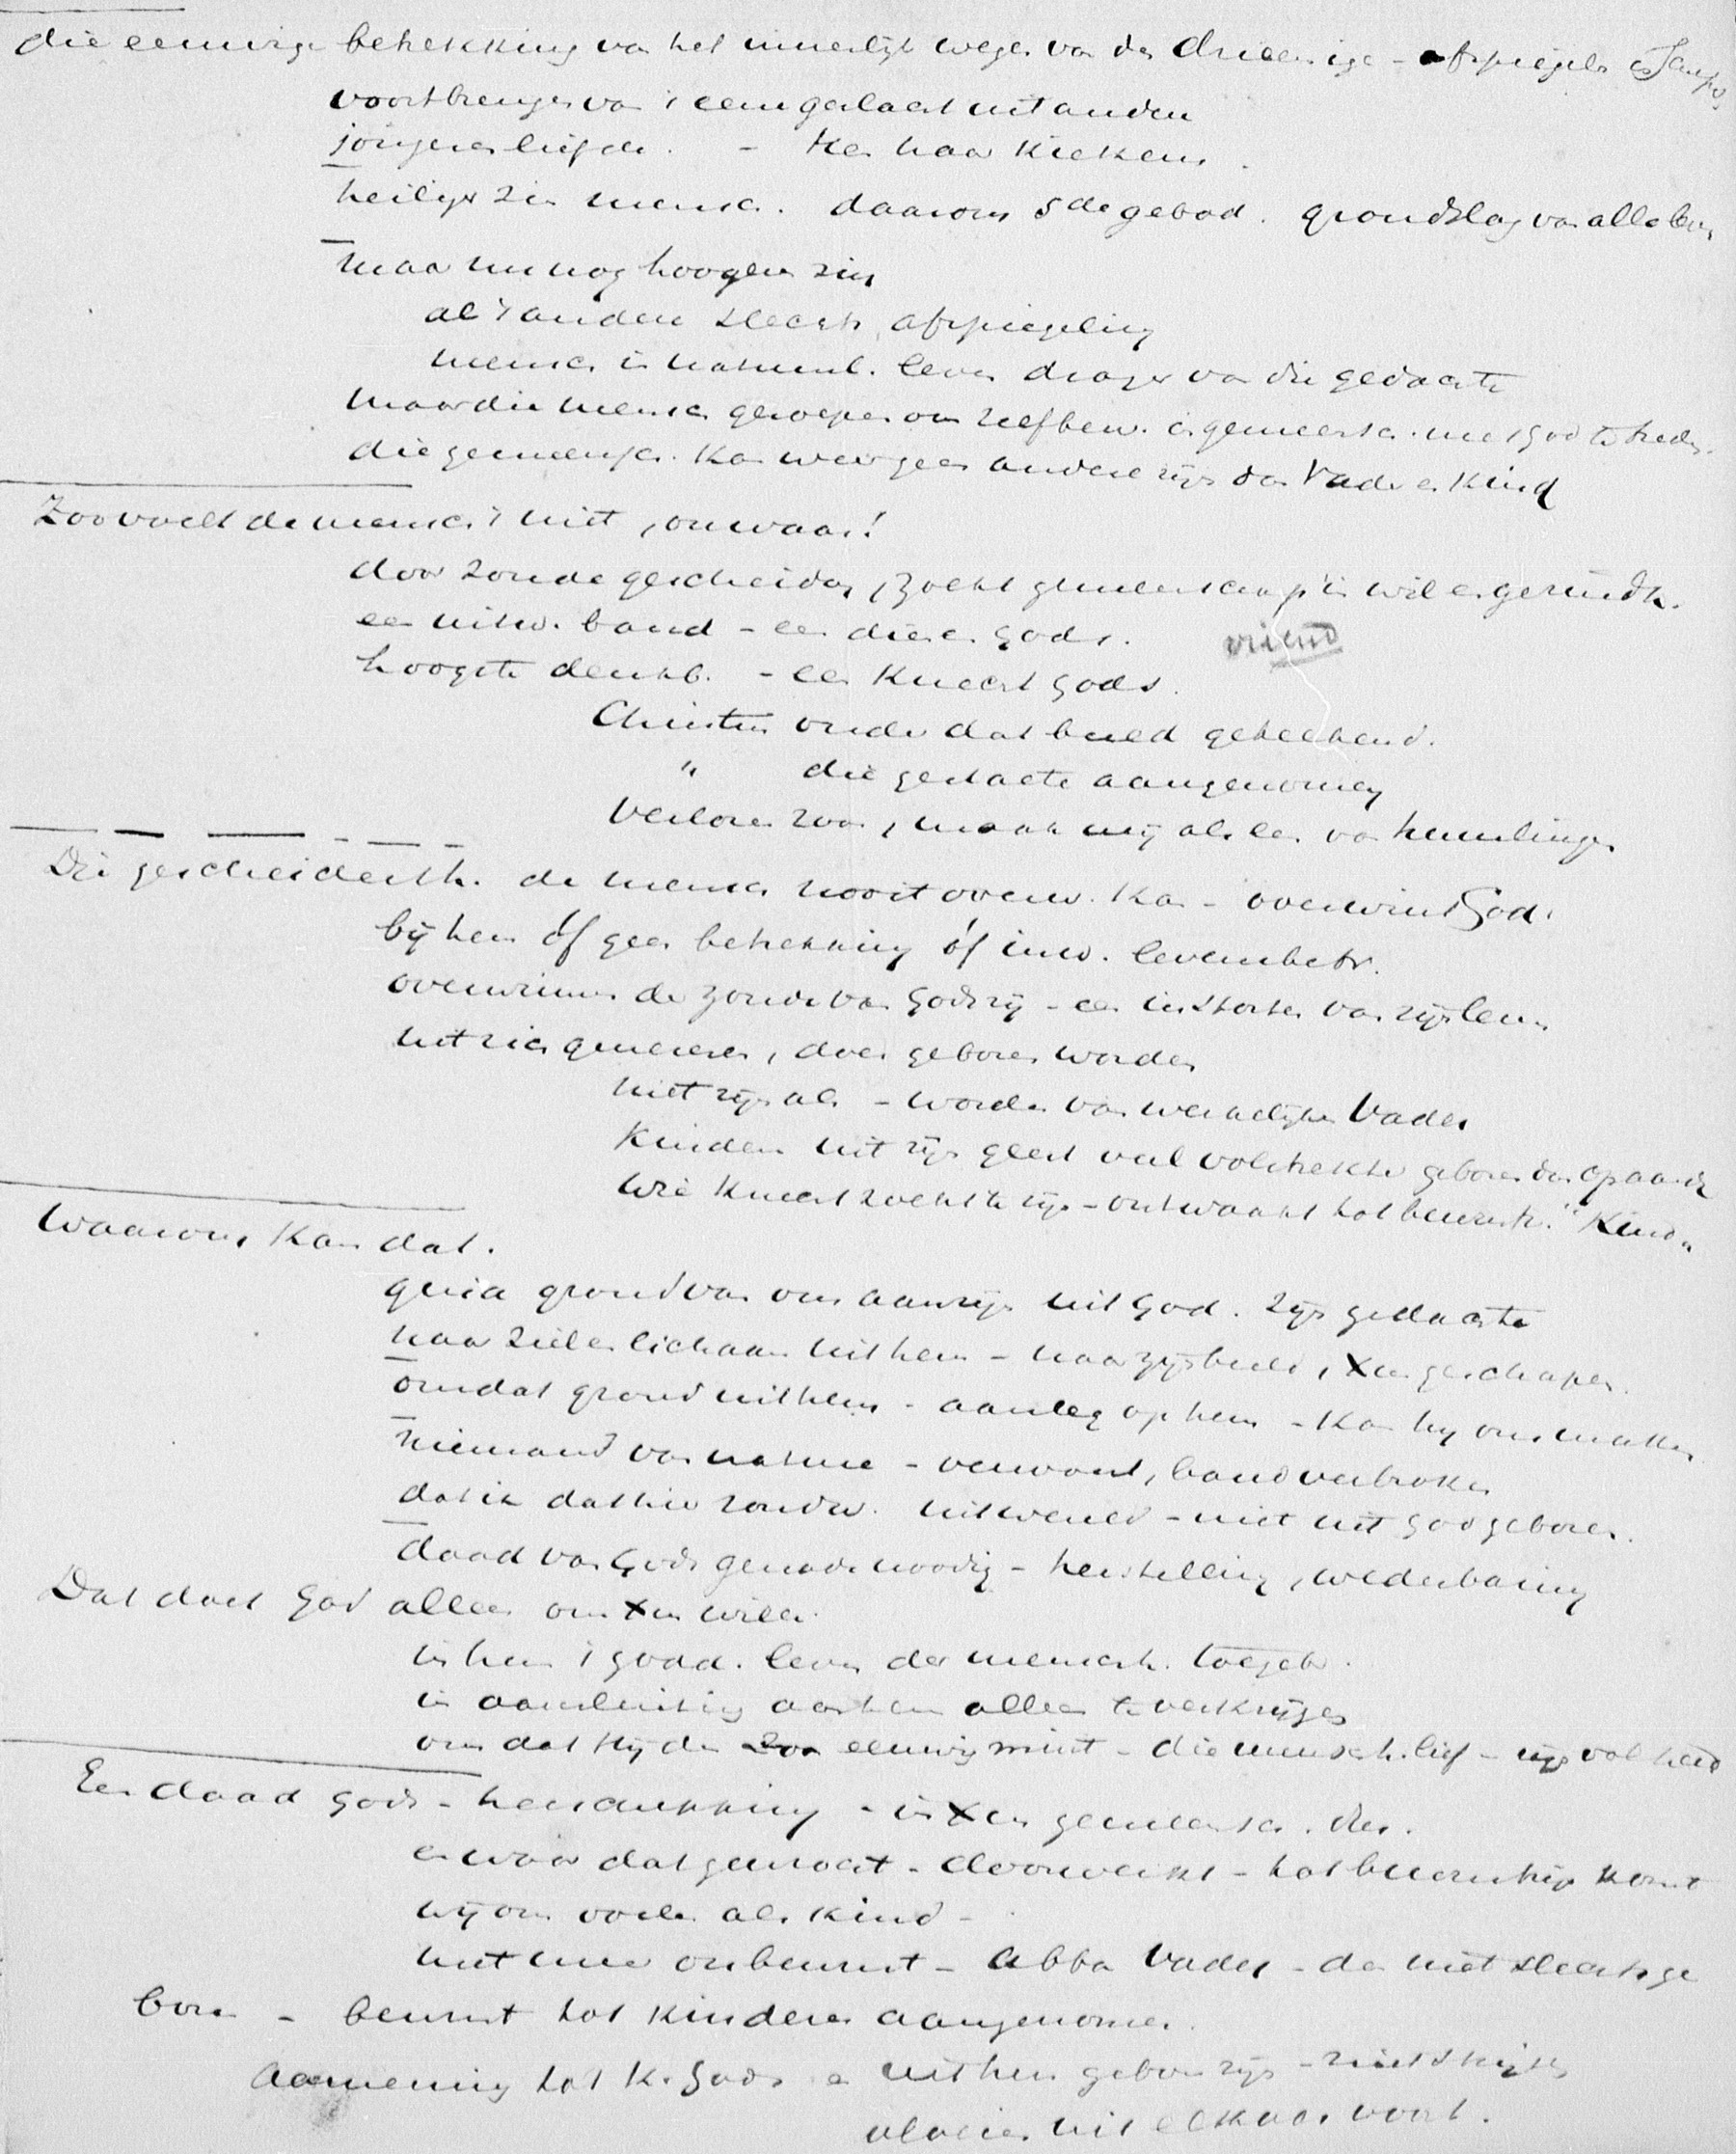 die eeuwige betrekking van het innerlijk wezen van den drieenige - afspiegelen in
voortbrengen van 't eene geslacht uit andere
jongeren liefde. - Hen haar kiekens.
heilige zin mensch. daarom 5de gebod. grondslag van alle leven
maar nu nog hoogere zin
al 't andere slechts afspiegeling
mensch in natuurl. leven drager van die gedachte
maar die mensch geroepen om zelfbew. in gemeensch. met God te treden.
die gemeensch. kan weer geen andere zijn dan Vader en Kind
Zoo voelt de mensch 't niet, onwaar!
door zonde gescheiden, zoekt gemeenschap in wil en gezindh.
een uitw. band - een dienen Gods. vriend
hoogste denkb. - een Knecht Gods.
Christus onder dat beeld geteekend.
" die gestalte aangenomen
Verloren zoon, maak mij als een van huurlingen
Die gescheidenh. de mensch nooit overw. kan - overwint God.
bij hem óf geen betrekking óf inw. levensbetr.
overwinnen de zonde van Gods zij - een instorten van zijn leven
uit zich genereren, doen geboren worden
niet zijn als - worden van werkelijken Vader
Kinderen uit zijn geest veel volstrekter geboren dan op aarde
Wie Knecht zocht te zijn - ontwaakt tot bewustz. "Kind"
Waarom kan dat.
quia grond van ons aanzijn uit God. zijn gedachte
naar ziel en lichaam uit hem - naar zijn beeld, Xus geschapen.
omdat grond uit hem - aanleg op hem - kan hij ons maken
niemand van nature - verwoest, band verbroken
dat ik dat hier zonder. uit wereld - niet uit God geboren.
daad van Gods genade noodig - herstelling, wederbaring
Dat doet God alleen om Xus wille.
in hem 't godd. leven der mensch. toegebr.
in aansluiting aan hem alleen te verkrijgen
omdat Hij den Zoon eeuwig mint - die mensch. lief - zijn volheid
Een daad Gods - herschepping - in Xus gemeensch.
en waar dat gewrocht - doorwerkt - tot bewustzijn komt
wij ons voelen als kind -
niet meer onbewust - Abba Vader - dan niet slechts ge
boren - bewust tot kinderen aangenomen.
Aanneming tot K. Gods en uit hem geboren zijn - niet strijdig
vloeien uit elkaar voort.